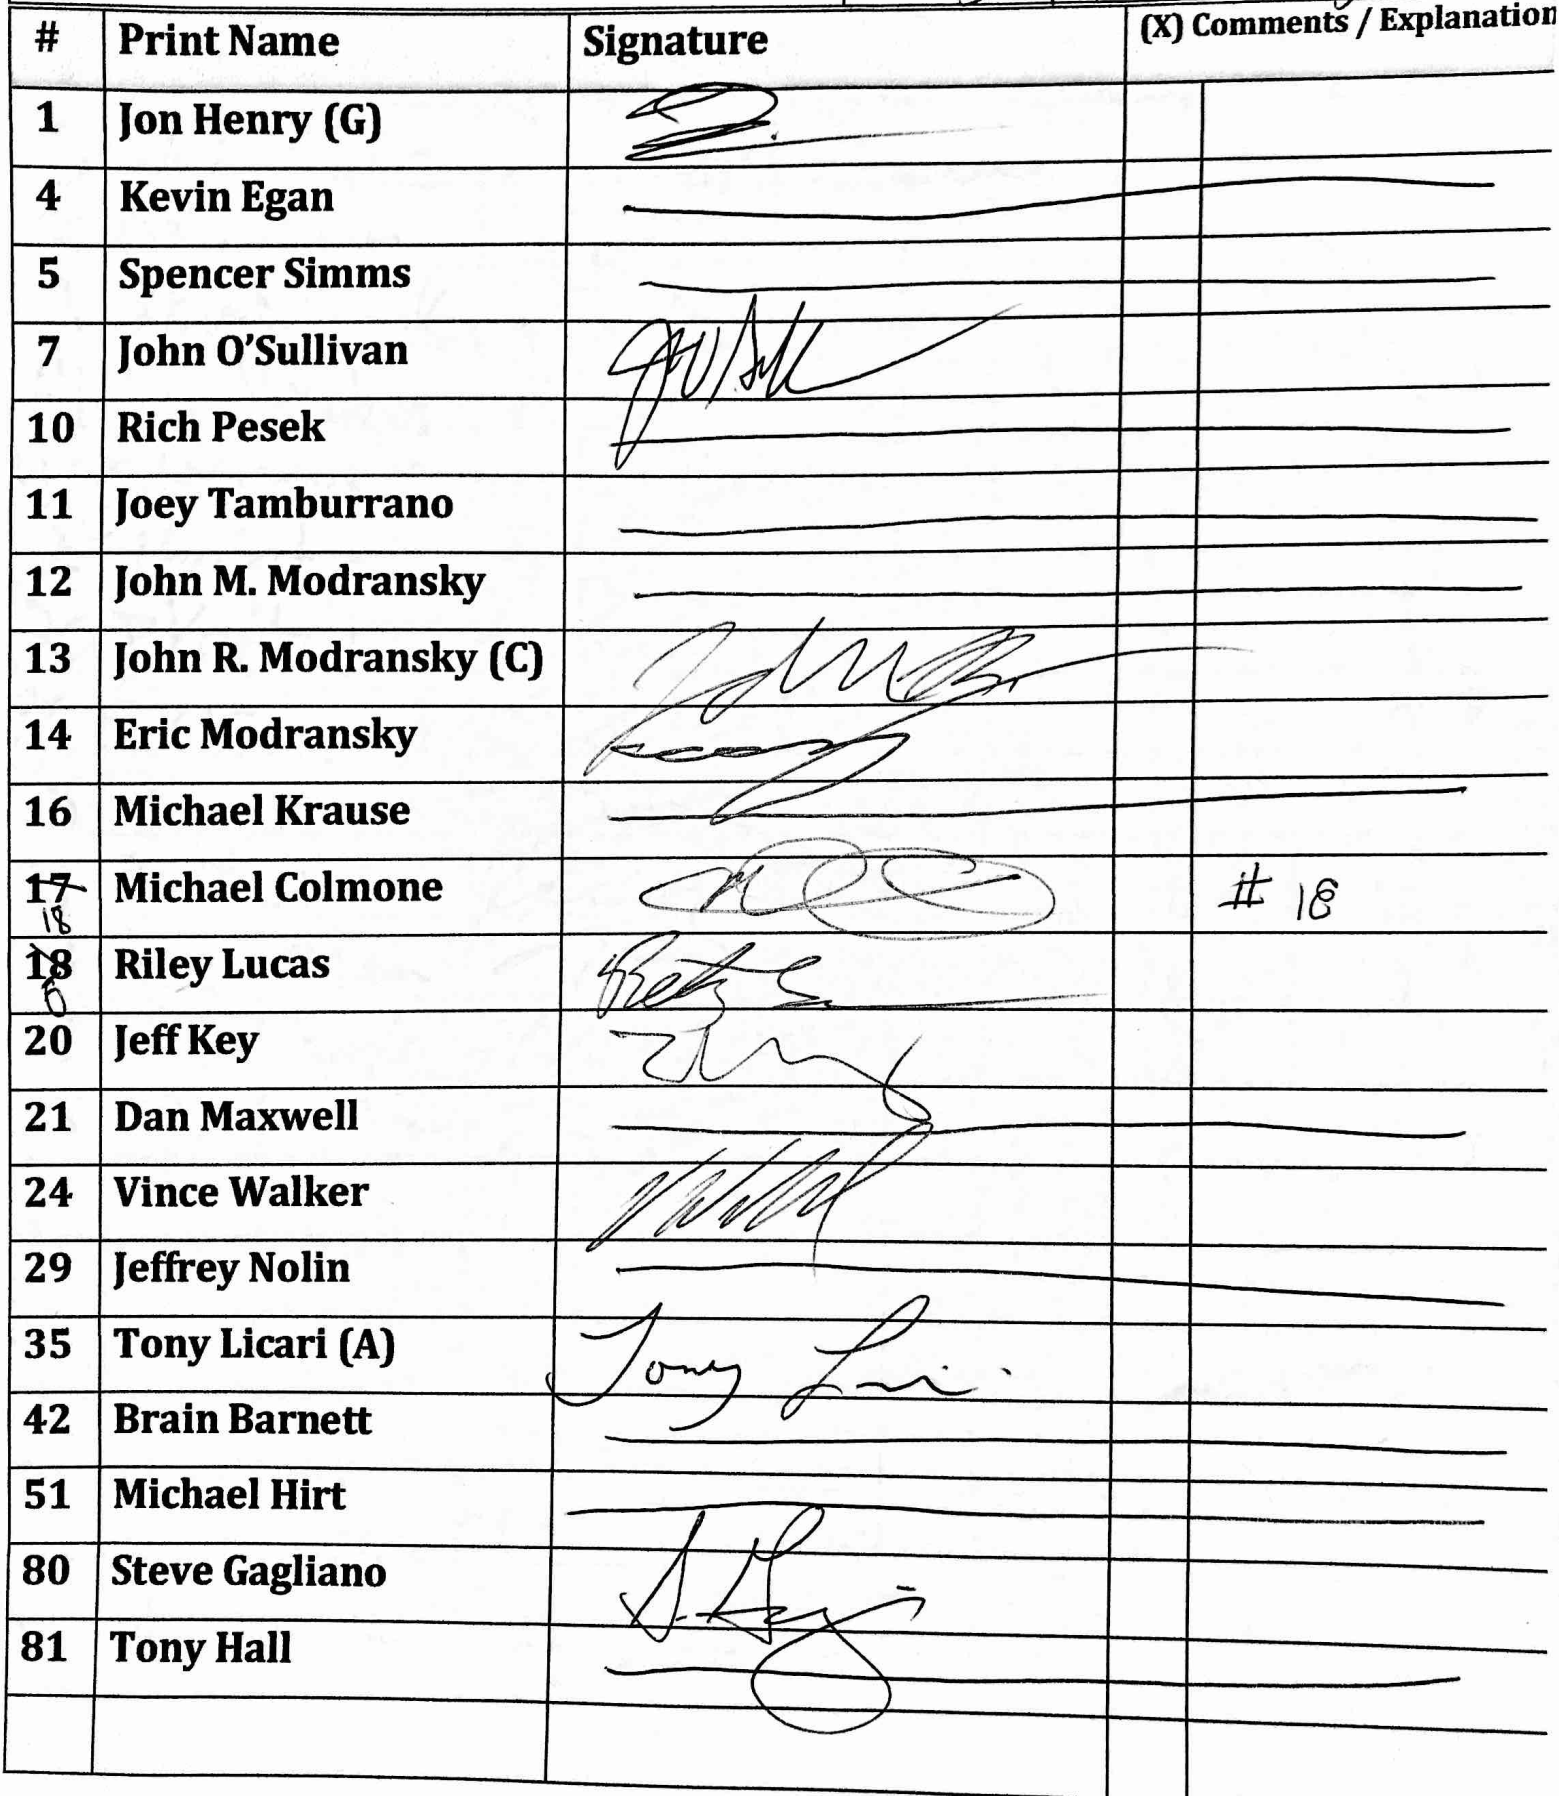 # Print Name Signature (X) Comments / Explanation
1 Jon Henry (G)
4 Kevin Egan
5 Spencer Simms
7 John O'Sullivan
10 Rich Pesek
11 Joey Tamburrano
12 John M. Modransky
13 John R. Modransky (C)
14 Eric Modransky
16 Michael Krause
17 Michael Colmone # 18
18
18 Riley Lucas
20 Jeff Key
21 Dan Maxwell
24 Vince Walker
29 Jeffrey Nolin
35 Tony Licari (A) Tony
42 Brain Barnett
51 Michael Hirt
80 Steve Gagliano
81 Tony Hall